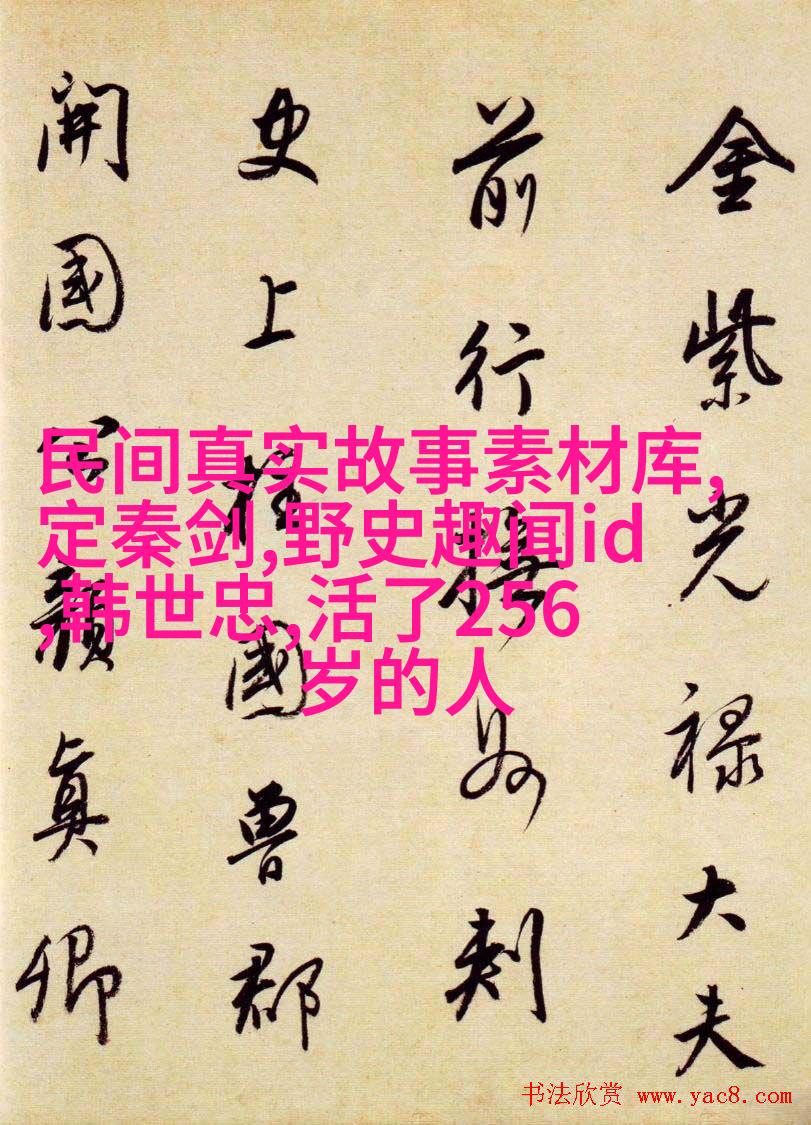 金紫光禄大夫
前行撫州刺
史上柱國魯郡
開國公顏真卿
民间真实故事素材库,
定秦剑,野史趣闻id
,韩世忠,活了256
岁的人
书法欣赏 www.yac8.com